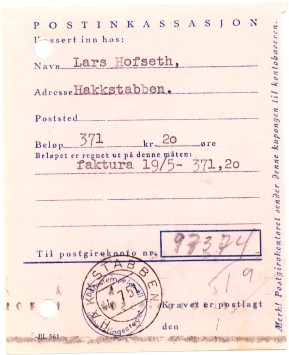 POSTINKASSASJON
Kassert inn hos:
Navn Lars Hofseth,
Adresse Hakkstabben.
Poststed
Beløp 371 kr. 20 øre
Beløpet er regnet ut på denne måten:
faktura 19/5- 371,20
Til postgirokonto nr. 97374
HAKKSTABBEN
19
Kravet er postlagt
den
Bl. 561
Merk! Postgirokontoret sender denne kupongen til kontohaveren.